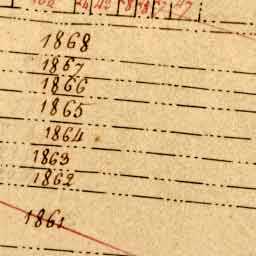 1868
1867
1866
1865
1864
1863
1862
1861